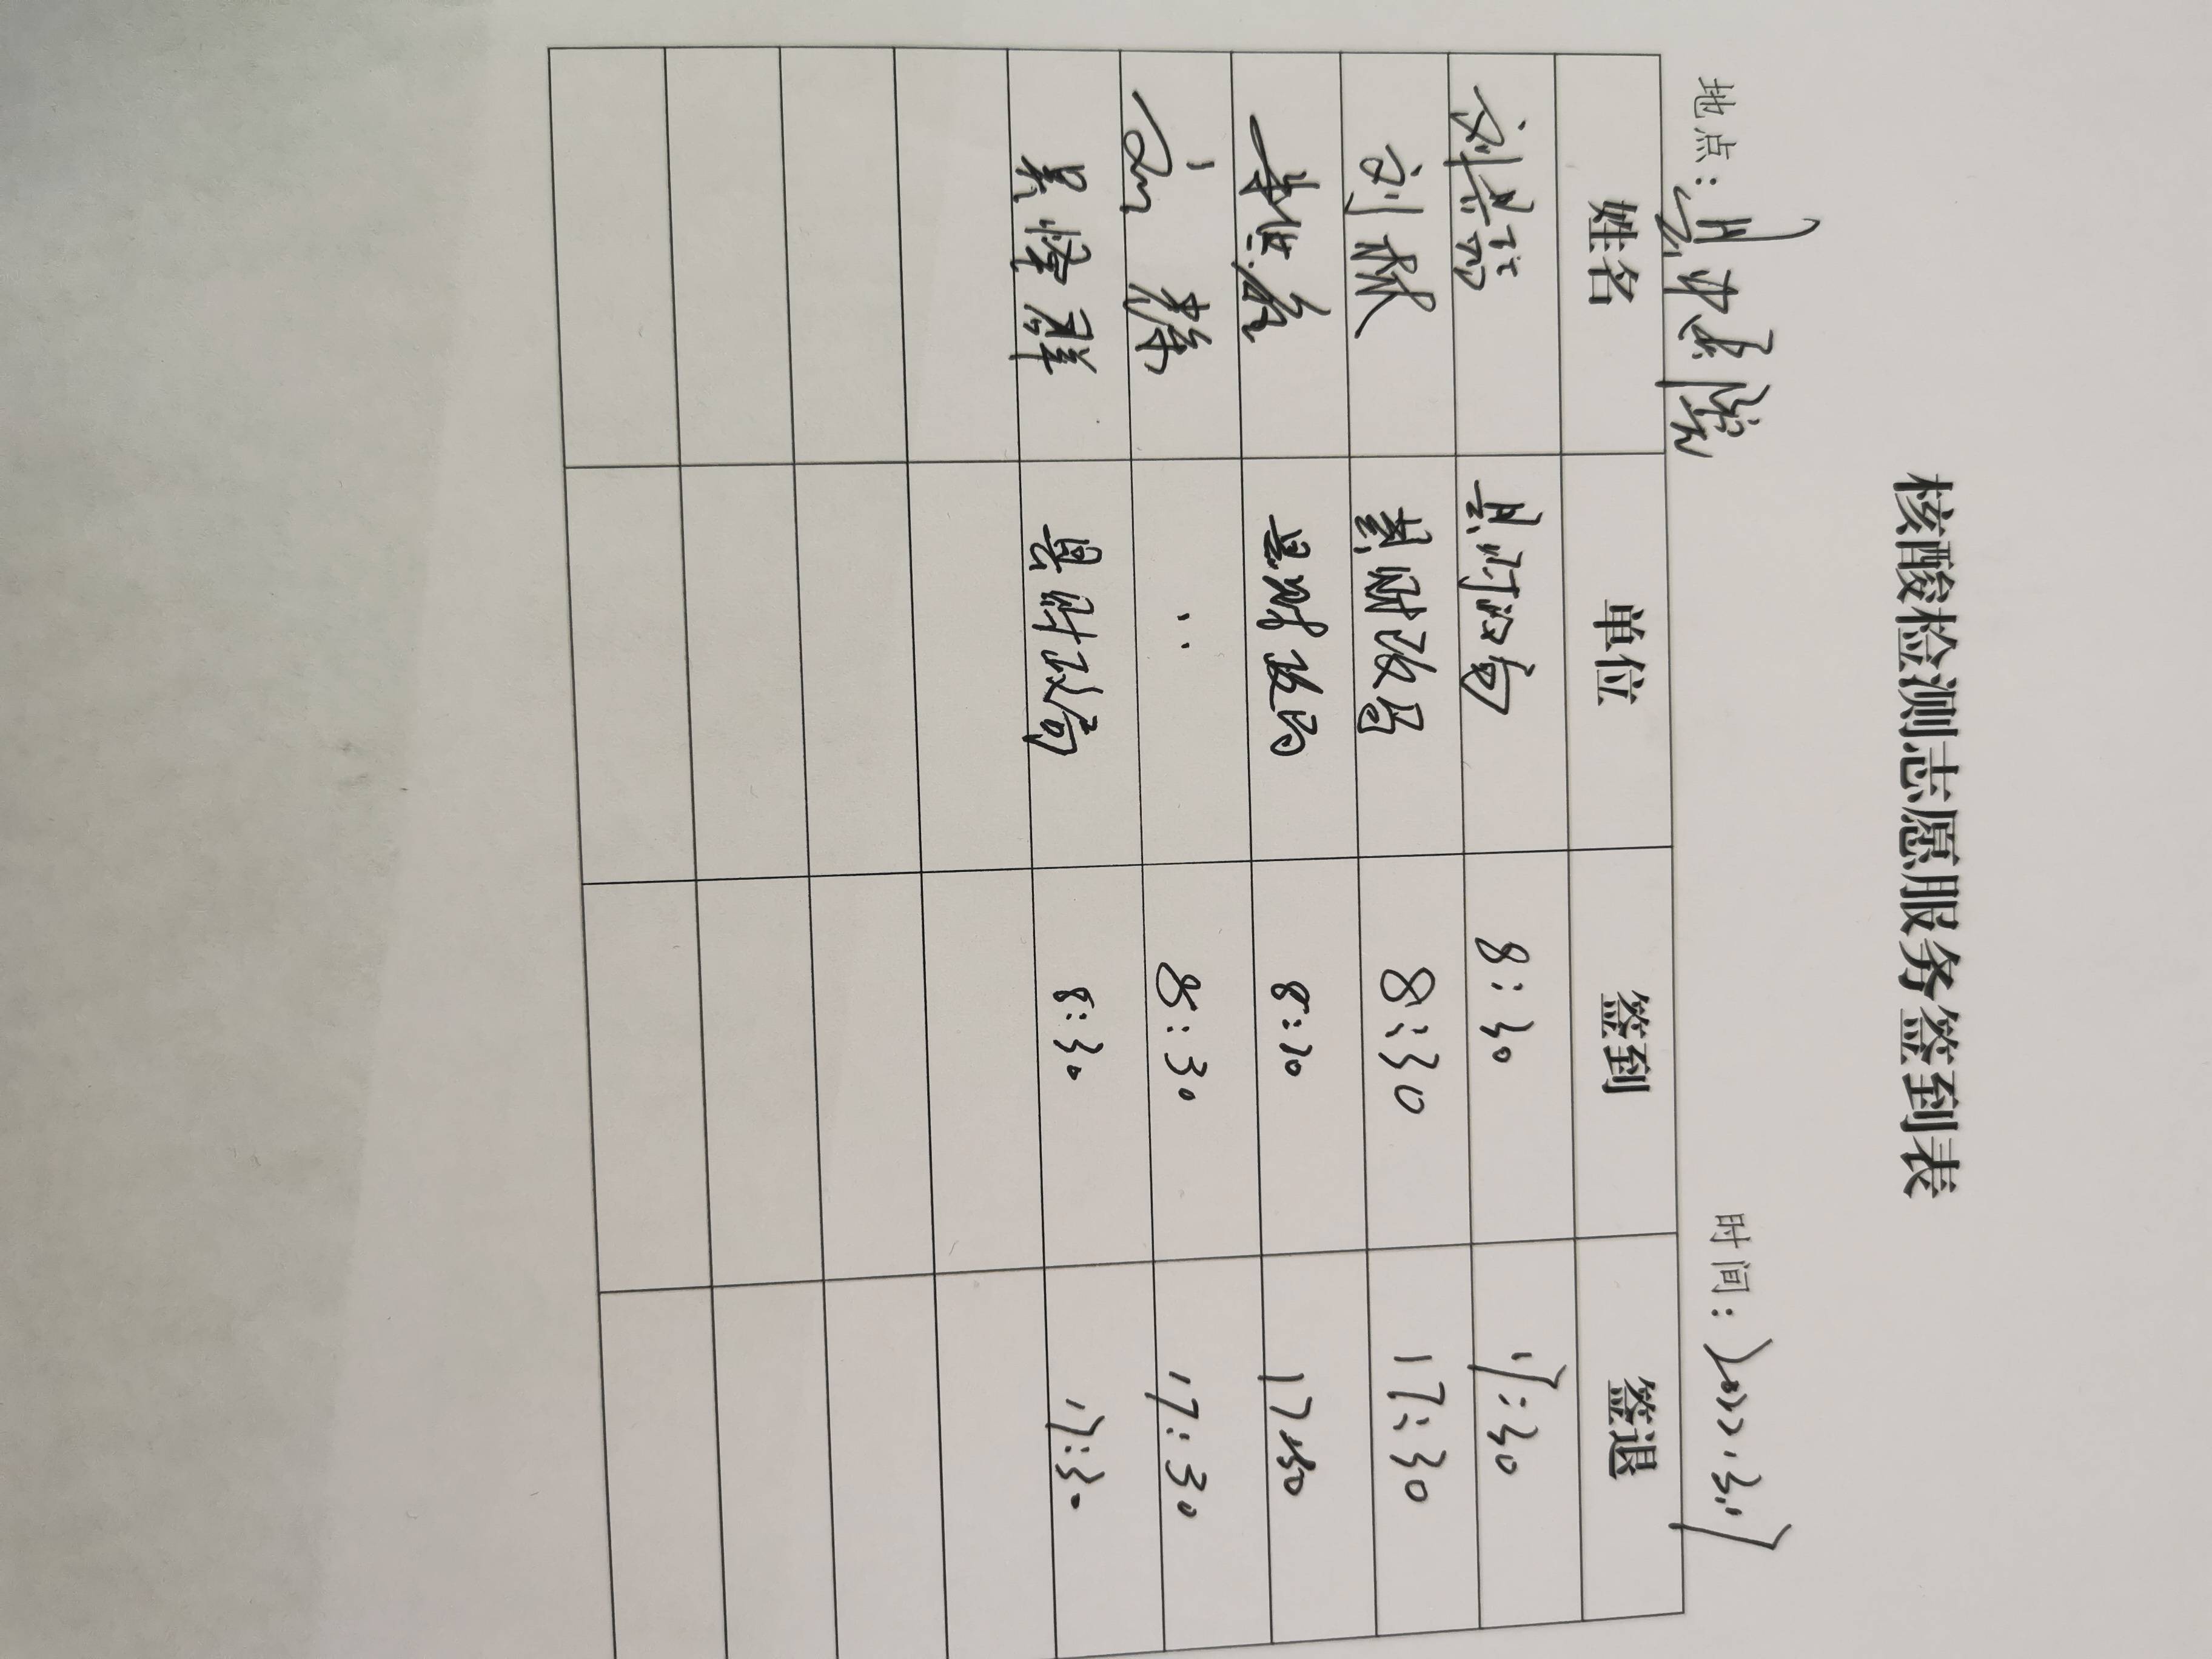 核酸检测志愿服务签到表
地点：县中医院 时间：2022.3.17
姓名 单位 签到 签退
刘 县财政局 8:30 17:30
刘林 县财政局 8:30 17:30
县财政局 8:30 17:30
〃 8:30 17:30
群 县财政局 8:30 17:30